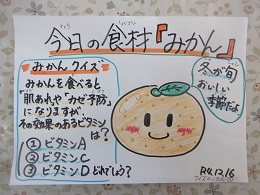 今日の食材『みかん』
みかんクイズ
みかんを食べると
「肌あれ」や「カゼ予防」
になりますが、
その効果のあるビタミン
は？
①ビタミンA
②ビタミンC
③ビタミンD どれでしょう？
冬が旬
おいしい
季節だよ
R2.12.16